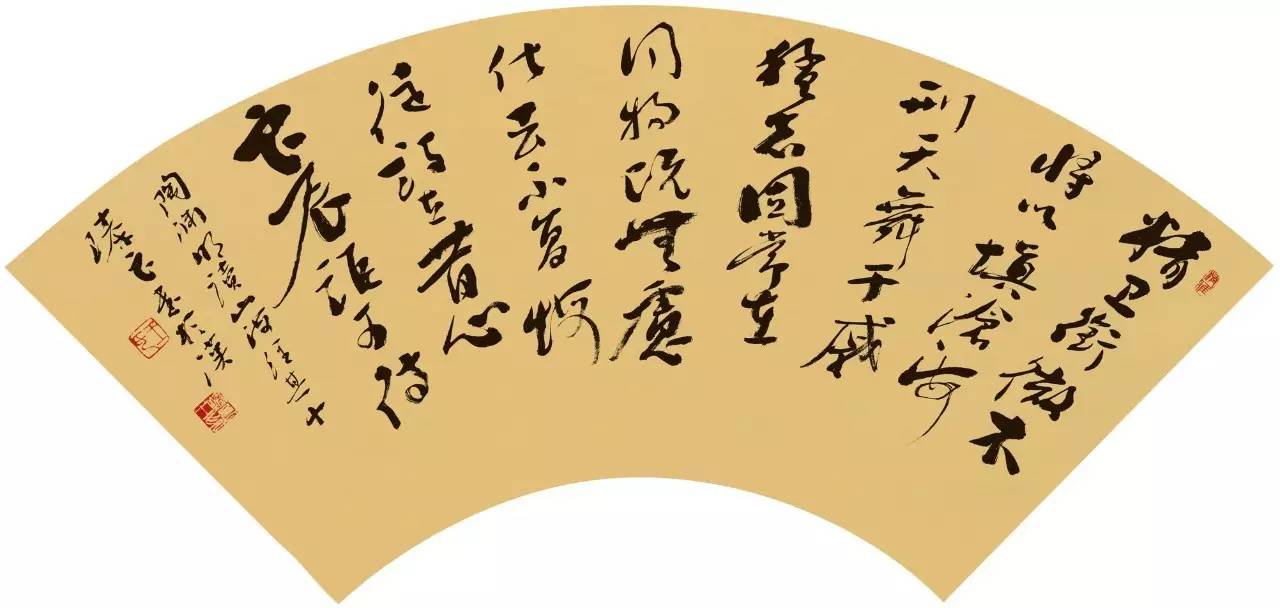 精卫銜微木
将以填滄海
刑天舞干戚
猛志固常在
同物既無慮
化去不复悔
徒设在昔心
良辰讵可待
陶渊明读山海经其十
飞书於汉